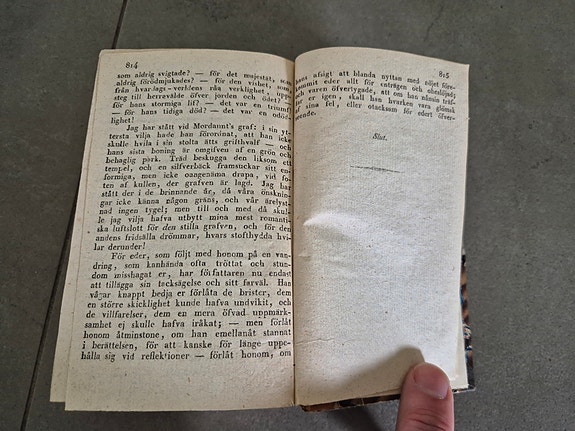 814
som aldrig svigtade? — för det majestät, som
aldrig förödmjukades? — för den vishet, som,
från hvardags-verldens råa verklighet, uppe-
steg till herravälde öfver jorden och ödet? —
för hans stormiga lif? — det var en triumf!
— för hans tidiga död? — det var en odöd-
lighet!
Jag har stått vid Mordaunt's graf: i sin yt-
tersta vilja hade han förordnat, att han icke
skulle hvila i sin stolta ätts grifthvalf — och
hans sista boning är omgifven af en grön och
behaglig park. Träd beskugga den liksom ett
tempel, och en silfverbäck framsuckar sitt en-
formiga, men icke oangenäma drapa, vid fo-
ten af kullen, der grafven är lagd. Jag har
stått der i de brinnande år, då våra önsknin-
gar icke känna någon gräns, och vår ärelyst-
nad ingen tygel; men till och med då skul-
le jag vilja hafva utbytt mina mest romanti-
ska luftslott för den stilla grafven, och för den
andens fridsälla drömmar, hvars stofthydda hvi-
lar derunder!
För eder, som följt med honom på en van-
dring, som kanhända ofta tröttat och stun-
dom misshagat er, har författaren nu endast
att tillägga sin tacksägelse och sitt farväl. Han
vågar knappt bedja er förlåta de brister, dem
en större skicklighet kunde hafva undvikit, och
de villfarelser, dem en mera öfvad uppmärk-
samhet ej skulle hafva iråkat; — men förlåt
honom åtminstone, om han emellanåt stannat
i berättelsen, för att kanske för länge uppe-
hålla sig vid reflektioner — förlåt honom, om
815
hans afsigt att blanda nyttan med nöjet före-
kommit eder allt för enträgen och obehöjd;
och varen öfvertygade, att om han nånsin träf-
far er igen, skall han hvarken vara glömsk
af sina fel, eller otacksam för edert öfver-
seende.
Slut.